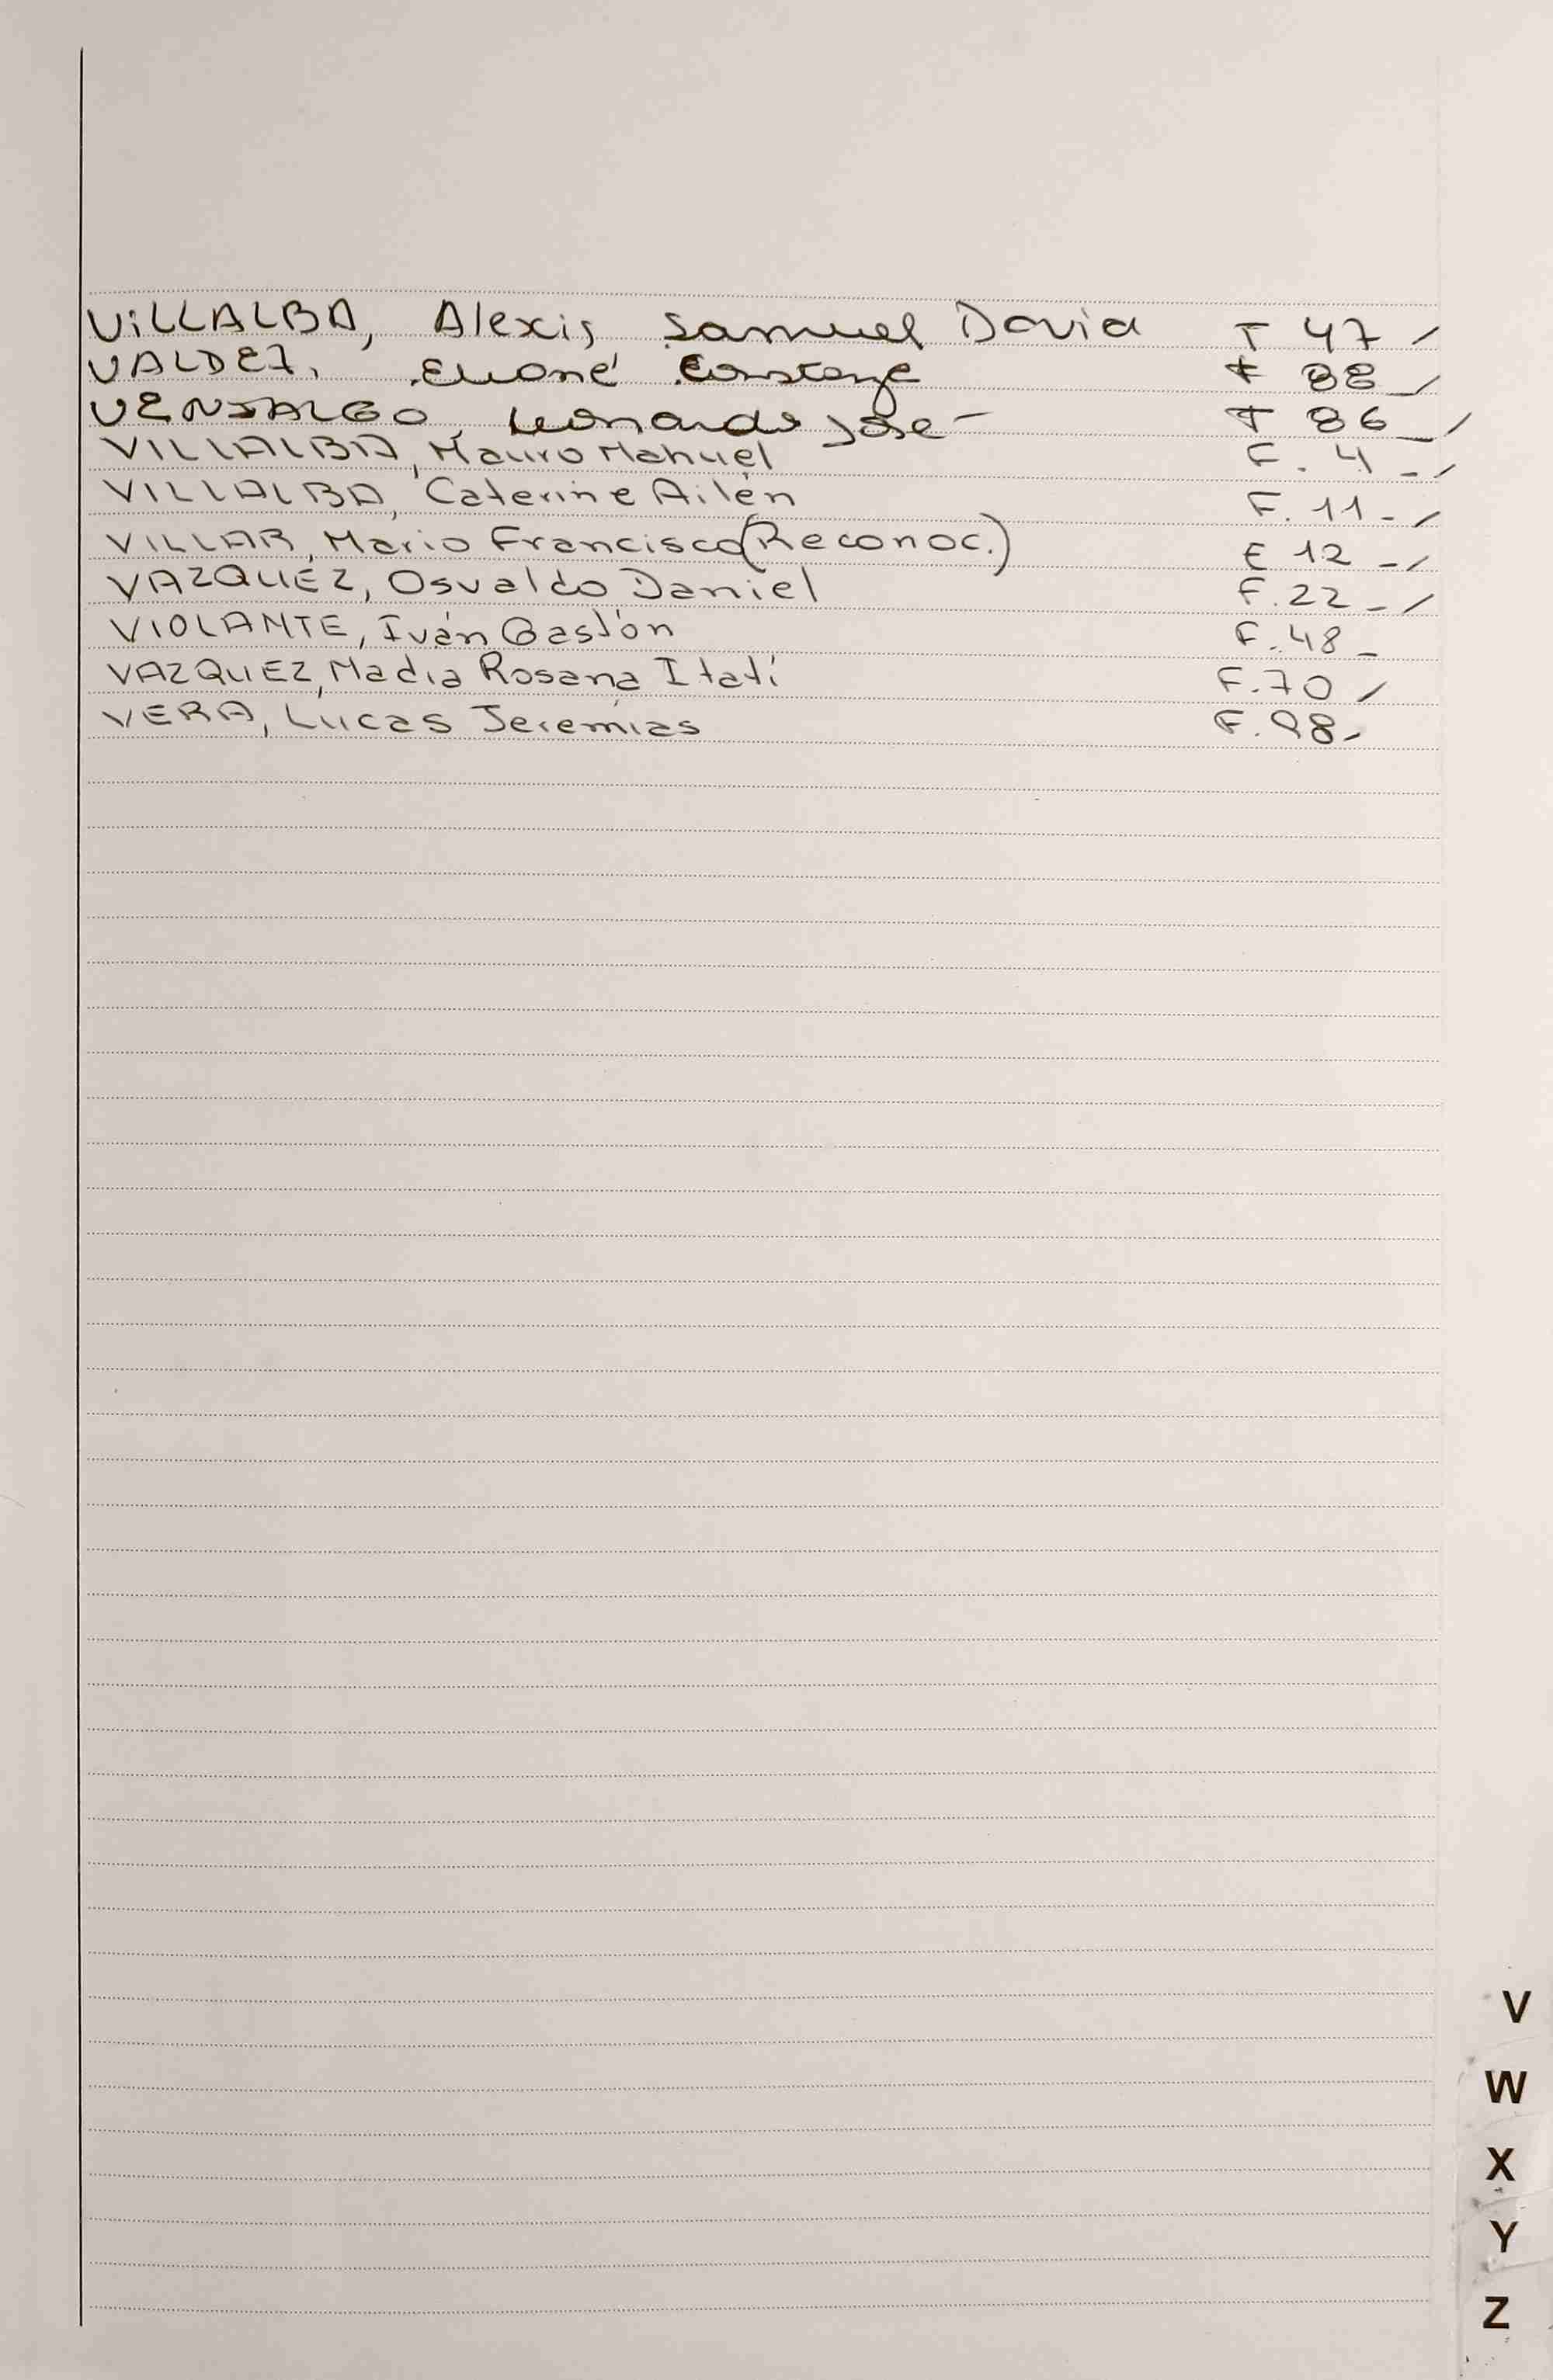 VILLALBA, Alexis Samuel David F 47
VALDEZ, F 88
VENIALGO, Leonardo José - F 86
VILLALBA, Mauro Mahuel F. 4 -
VILLALBA, Caterine Ailén F. 11 -
VILLAR, Mario Francisco (Reconoc.) F 12 -
VAZQUEZ, Osvaldo Daniel F. 22 -
VIOLANTE, Iván Gastón F. 48 -
VAZQUEZ, Nadia Rosana Itatí F. 70
VERA, Lucas Jeremías F. 98
V
W
X
Y
Z